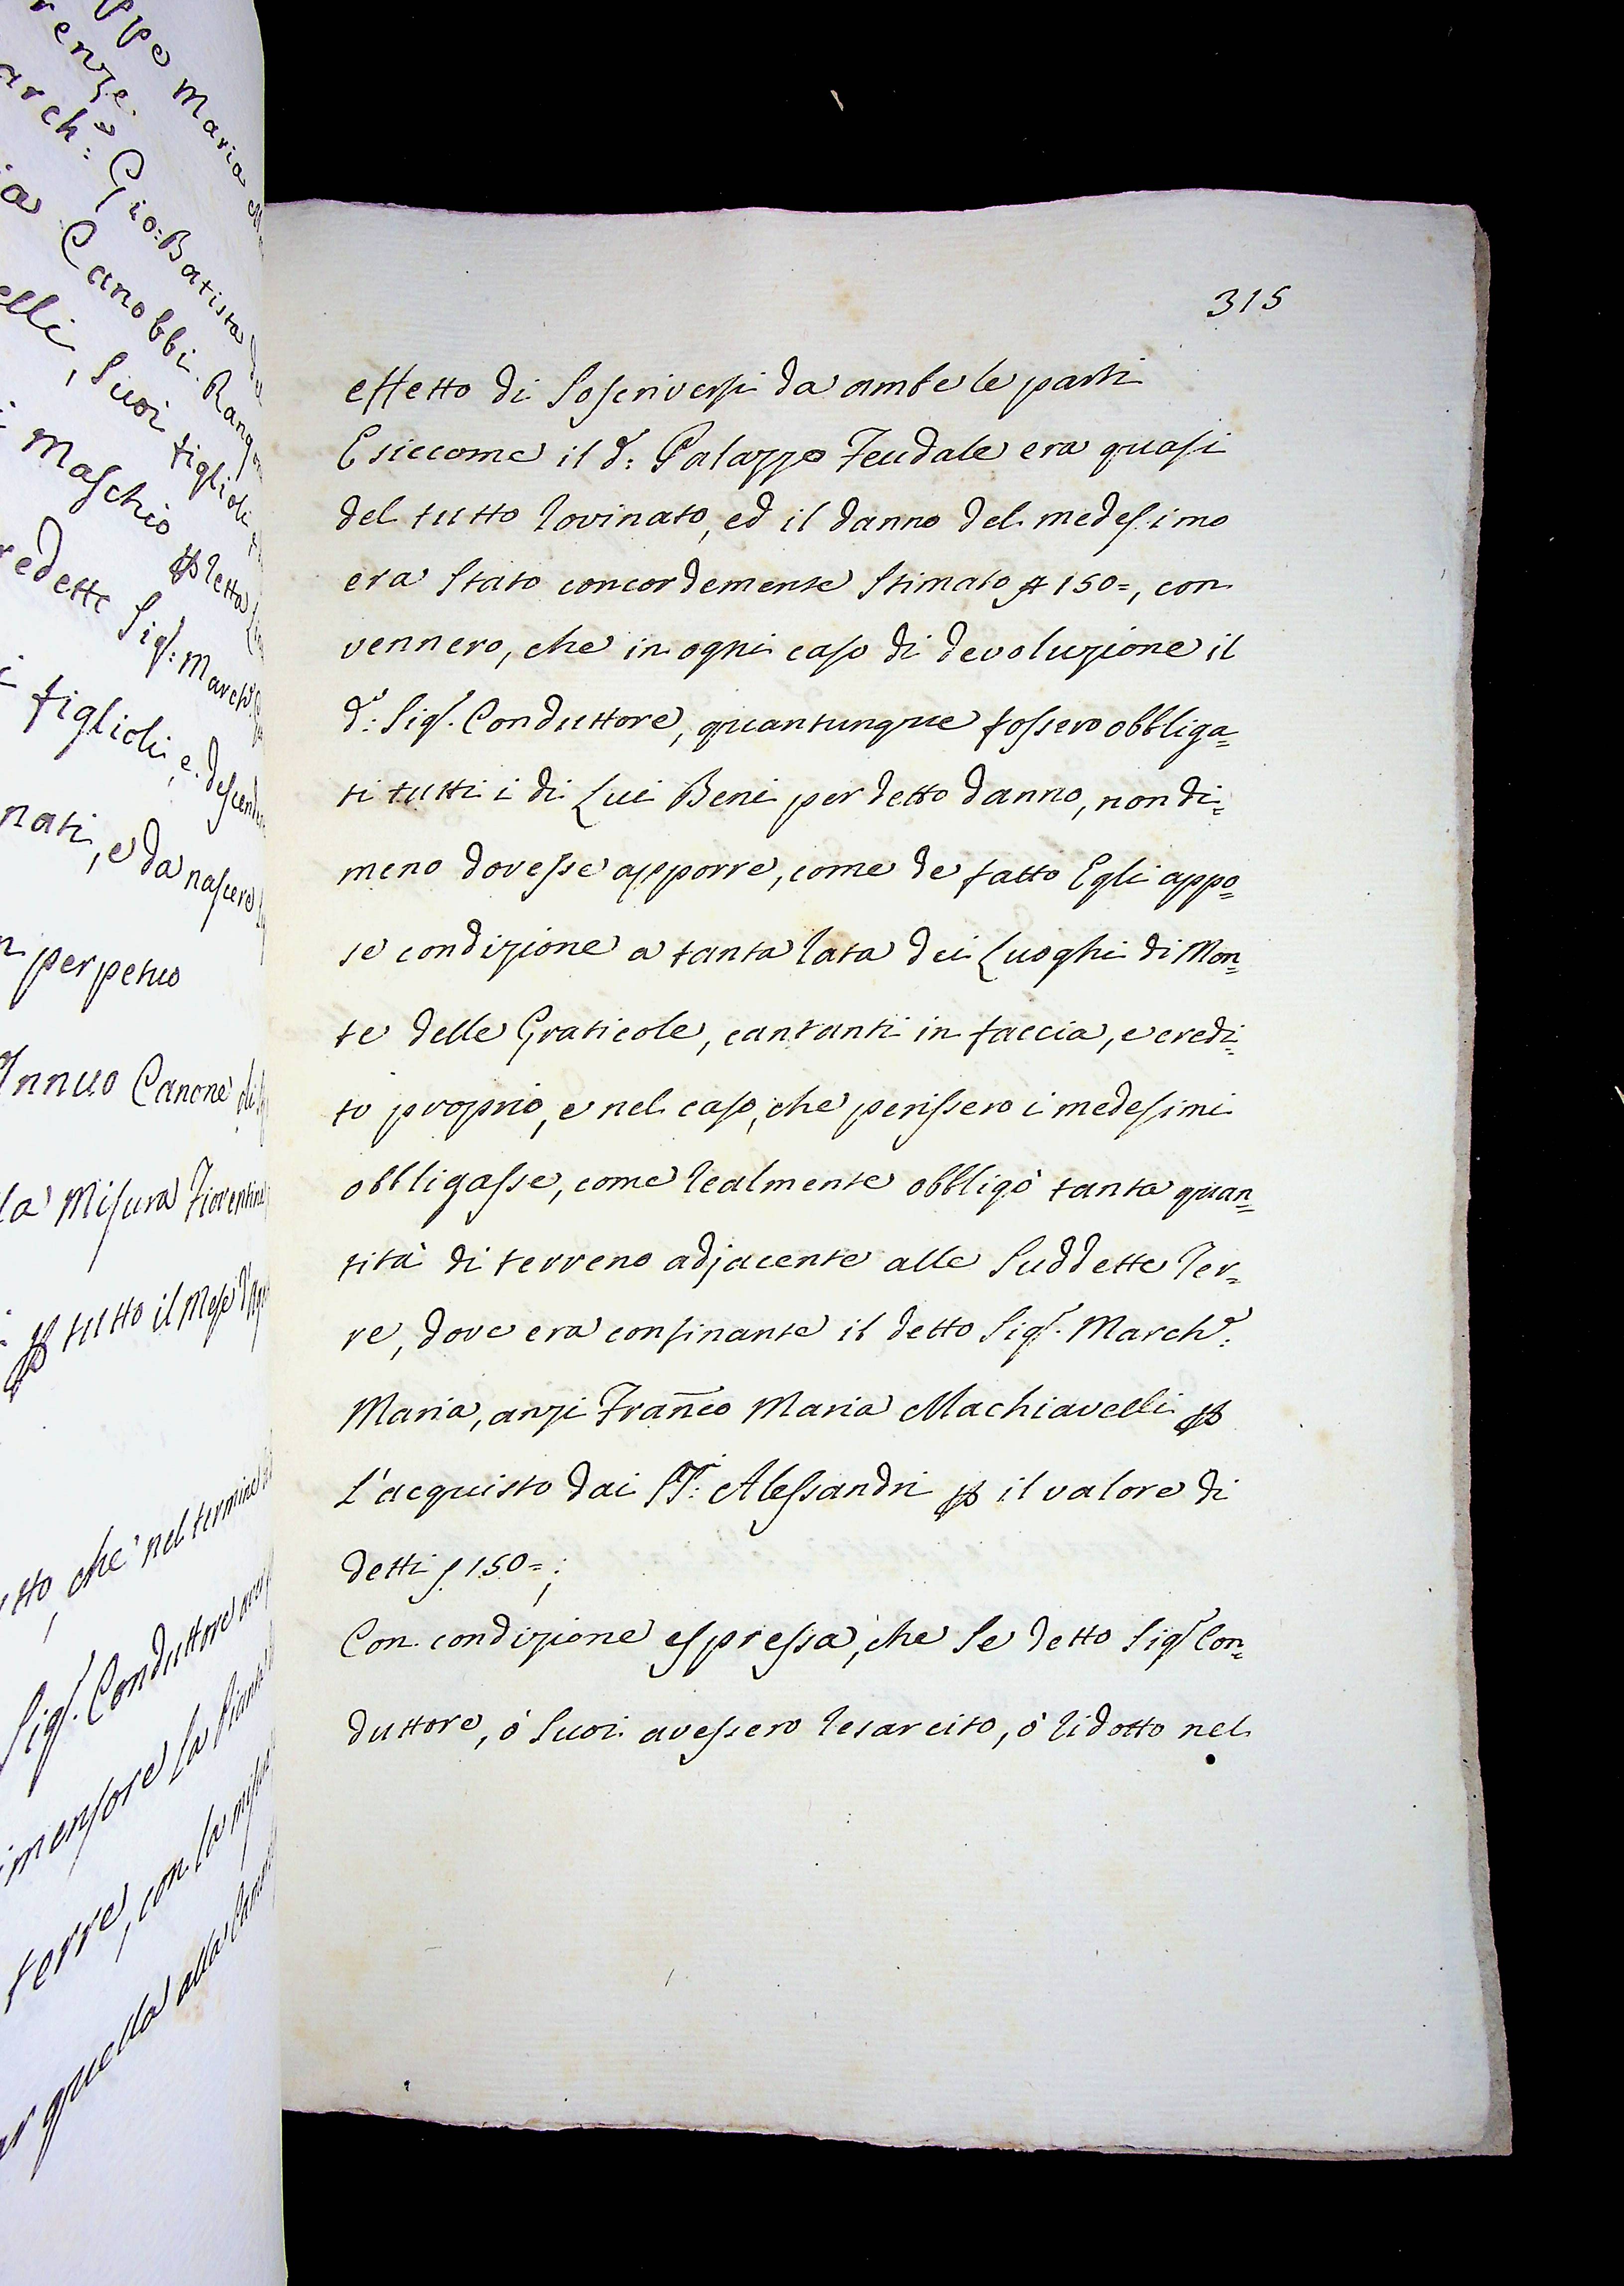 ppo Maria
renze
arch:e Gio: Batista
ia Canobbi Rang
elli, Suoi figlioli
i Maschio
redette Sigr: March
i figlioli, e descend
nati, e da nascere
n perpetuo
Annuo Canone di
la Misura Fiorentina
tutto il Mese d'Ag
tto, che nel termine
Sigr. Conduttore
imensore la Pianta
terre, con la misura
er quella alla
315
effetto di Soscriversi da ambe le parti
E siccome il do: Palazzo Feudale era quasi
del tutto rovinato, ed il danno del medesimo
era Stato concordemente Stimato 150=, con
vennero, che in ogni caso di devoluzione il
do: Sigr. Conduttore, quantunque fossero obbliga=
ti tutti i di Lui Beni per detto danno, non di=
meno dovesse apporre, come de fatto Egli appo=
se condizione a tanta rata dei Luoghi di Mon=
te delle Graticole, cantanti in faccia, e credi=
to proprio, e nel caso, che perissero i medesimi
obbligasse, come realmente obbligò tanta quan=
tità di terreno adjacente alle Suddette Ter=
re, dove era confinante il detto Sigr. Marche:
Maria, anzi Franco Maria Machiavelli
L'acquisto dai SS:ri Alessandri il valore di
detti 150=;
Con condizione espressa, che Se detto Sigr Con=
duttore, ò Suoi avessero resarcito, ò ridotto nel